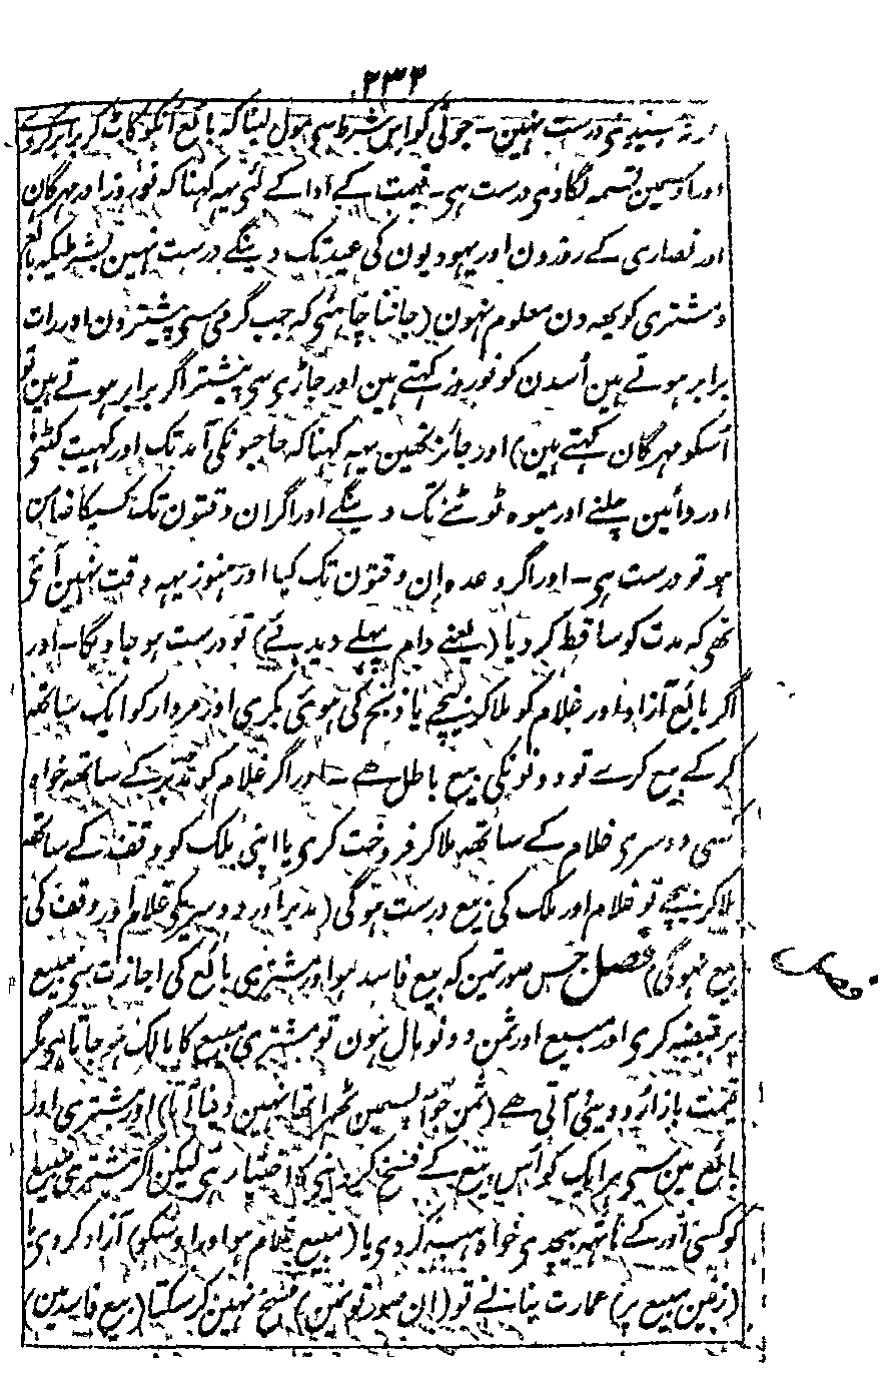 ۲۳۲
سیندہی درست نہین - جوتی کو اس شرط سی مول لینا کہ بائع انکو کاٹ کر برابر کردے
اور اوسمین تسمہ لگادی درست ہی - قیمت کے ادا کے لئی یہہ کہنا کہ نوروز اور مہرگان
اور نصاری کے روزون اور یہودیون کی عید تک دینگے درست نہین بشرطیکہ بائع
ومشتری کو یہہ دن معلوم نہون (جاننا چاہئی کہ جب گرمی سی پیشتر دن اور رات
برابر ہوتے ہین اُسدن کو نوروز کہتے ہین اور جاڑی سی پیشتر اگر برابر ہوتے ہین تو
اُسکو مہرگان کہتے ہین) اور جائز نہین یہہ کہنا کہ حاجیونکی آمد تک اور کہیت کٹنی
اور دائین چلنے اور میوہ ٹوٹنے تک دینگے اور اگر ان وقتون تک کسیکا ضامن
ہو تو درست ہی - اور اگر وعدہ ان وقتون تک کیا اور ہنوز یہہ وقت نہین آئی
تھی کہ مدت کو ساقط کر دیا (یعنے دام پہلے دیدیے) تو درست ہو جاویگا - اور
اگر بائع آزاد اور غلام کو ملاکر بیچے یا ذبح کی ہوئی بکری اور مردار کو ایک ساتھہ
کر کے بیع کرے تو دونونکی بیع باطل ہے - اور اگر غلام کو مدبر کے ساتھہ خواہ
کسی دوسری غلام کے ساتھہ ملاکر فروخت کری یا اپنی ملک کو وقف کے ساتھہ
ملاکر بیچے تو غلام اور ملک کی بیع درست ہوگی (مدبر اور دوسریکی غلام اور وقف کی
بیع نہوگی) فصل جس صورتمین کہ بیع فاسد ہو اور مشتری بائع کی اجازت سی مبیع
پر قبضہ کری اور مبیع اور ثمن دونو مال ہون تو مشتری مبیع کا مالک ہو جاتا ہی مگر
قیمت بازار دیدینی آتی ہے (ثمن جو آپسمین ٹھرا تھا نہین دینا آتا) اور مشتری اور
بائع مین سی ہر ایک کو اُس بیع کے فسخ کردینی کا اختیار ہی لیکن اگر مشتری مبیع
کو کسی اور کے ہاتہہ بیچدی خواہ ہبہ کردی یا (مبیع غلام ہو اور اوسکو) آزاد کردی یا
(زمین مبیع پر) عمارت بنالے تو (ان صورتونمین) فسخ نہین کر سکتا (بیع فاسد مین)
فصل